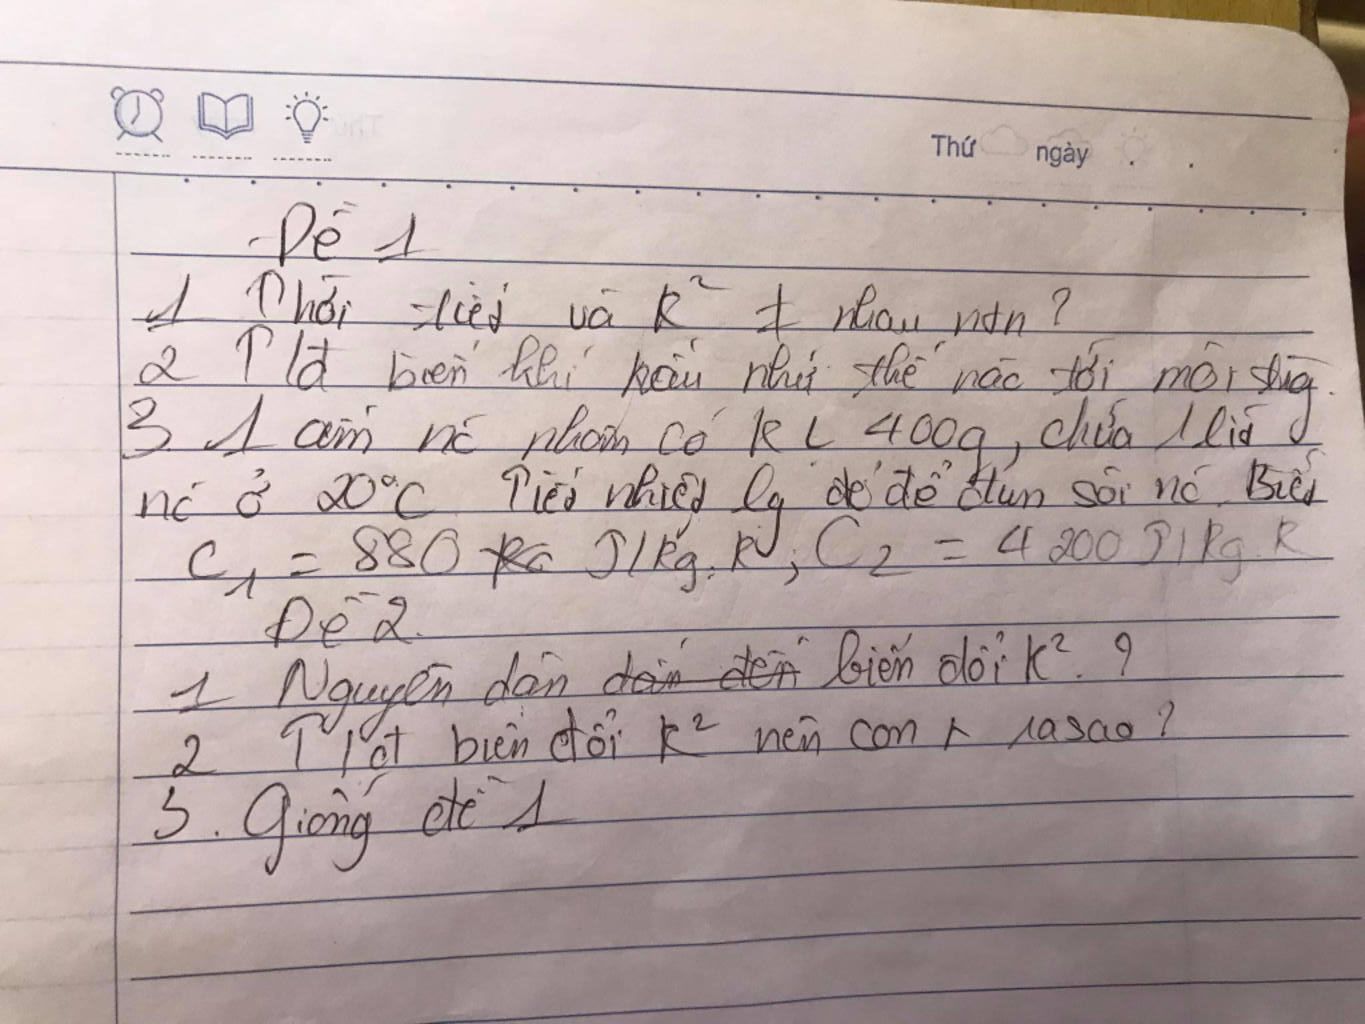 Thứ ngày
Đề 1
1 Thời tiết và k² ≠ nhau ntn?
2 Tlđ biến khí hậu như thế nào tới môi trg.
3. 1 ấm nc nhôm có KL 400g, chứa 1 lít
nc ở 20°C Tiết nhiệt lg để đun sôi nc. Biết
C₁ = 880 J/kg.K; C₂ = 4200 J/kg.K
Đề 2.
1 Nguyên dân biến dổi k². ?
2 Tlđ biến đổi k² nên con ra sao?
3. Giống đề 1